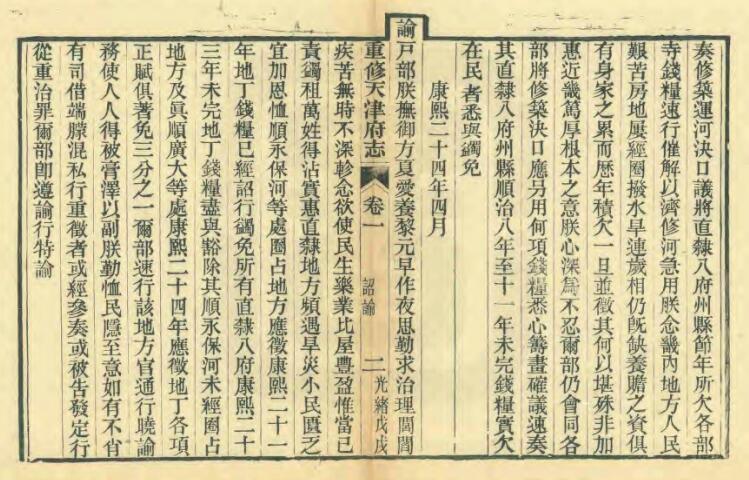 奏修築運河決口議將直隸八府州縣節年所欠各部
寺錢糧速行催解以濟修河急用朕念畿內地方人民
艱苦房地屢經圈撥水旱連歲相仍旣缺養贍之資俱
有身家之累而歷年積欠一旦並徵其何以堪殊非加
惠近畿篤厚根本之意朕心深爲不忍爾部仍會同各
部將修築決口應另用何項錢糧悉心籌畫確議速奏
其直隸八府州縣順治八年至十一年未完錢糧實欠
在民者悉與蠲免
康熙二十四年四月
諭戸部朕撫御方夏愛養黎元早作夜思勤求治理閭閻
重修天津府志 卷一 詔諭 二 光緒戊戌
疾苦無時不深軫念欲使民生樂業比屋豐盈惟當已
責蠲租萬姓得沾實惠直隸地方頻遇旱災小民匱乏
宜加恩恤順永保河等處圈占地方應徵康熙二十一
年地丁錢糧已經詔行蠲免所有直隸八府康熙二十
三年未完地丁錢糧盡與豁除其順永保河未經圈占
地方及眞順廣大等處康熙二十四年應徵地丁各項
正賦俱著免三分之一爾部速行該地方官通行曉諭
務使人人得被膏澤以副朕勤恤民隱至意如有不肖
有司借端朦混私行重徵者或經參奏或被告發定行
從重治罪爾部卽遵諭行特諭